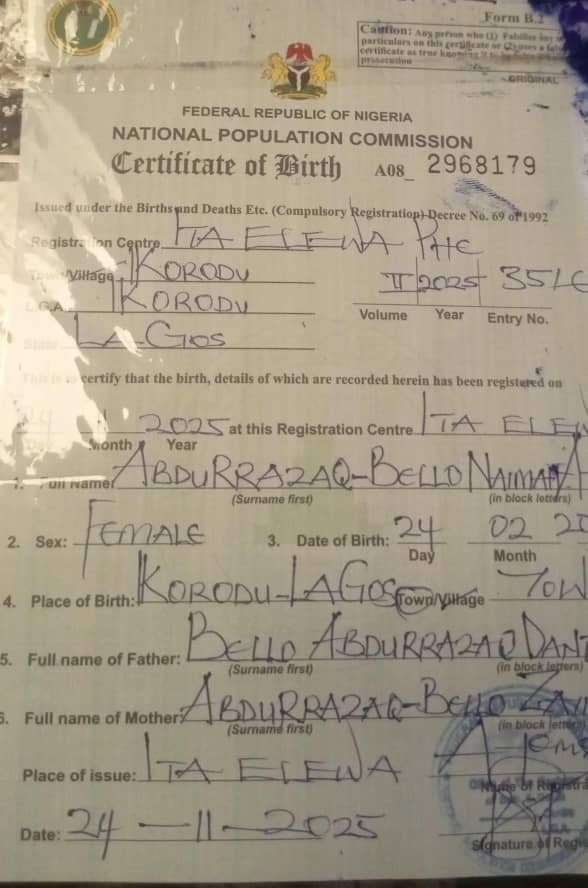 Form B.2
Caution: Any person who (1) Falsifies any
particulars on this certificate or (2) uses a
certificate as true knowing it to be
prosecution
ORIGINAL
FEDERAL REPUBLIC OF NIGERIA
NATIONAL POPULATION COMMISSION
Certificate of Birth A08_ 2968179
Issued under the Births and Deaths Etc. (Compulsory Registration) Decree No. 69 of 1992
Registration Centre ITA ELEWA PHC
Village IKORODU
L.G.A. IKORODU
II 2025 351
Volume Year Entry No.
State LAGOS
This is to certify that the birth, details of which are recorded herein has been registered on
24 2025 at this Registration Centre ITA ELEW
Day Month Year
1. Full Name: ABDURRAZAQ-BELLO NAIMAH
(Surname first) (in block letters)
2. Sex: FEMALE 3. Date of Birth: 24 02
Day Month
4. Place of Birth: IKORODU-LAGOS Town/Village TOW
5. Full name of Father: BELLO ABDURRAZAQ
(Surname first) (in block letters)
6. Full name of Mother: ABDURRAZAQ-BELLO
(Surname first) (in block letters)
Place of issue: ITA ELEWA
Name of Registra
Date: 24-11-2025
Signature of Regis